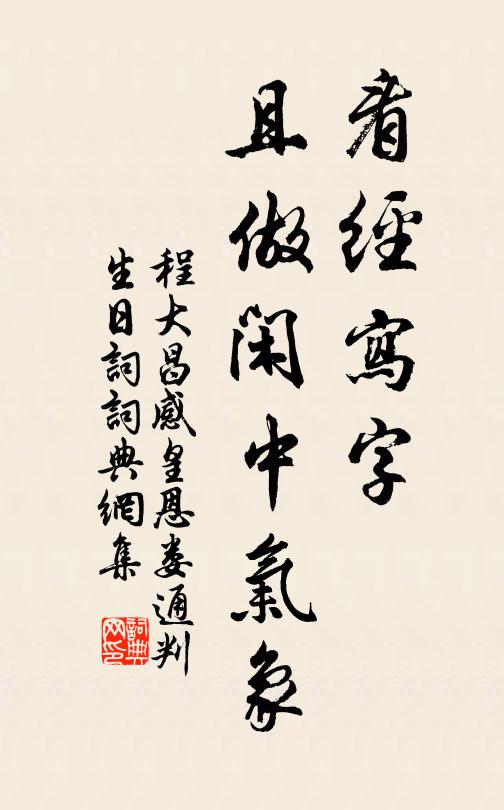 看經寫字
且做閑中氣象
程大昌感皇恩娄通判
生日詞詞典網集
詞典
网印